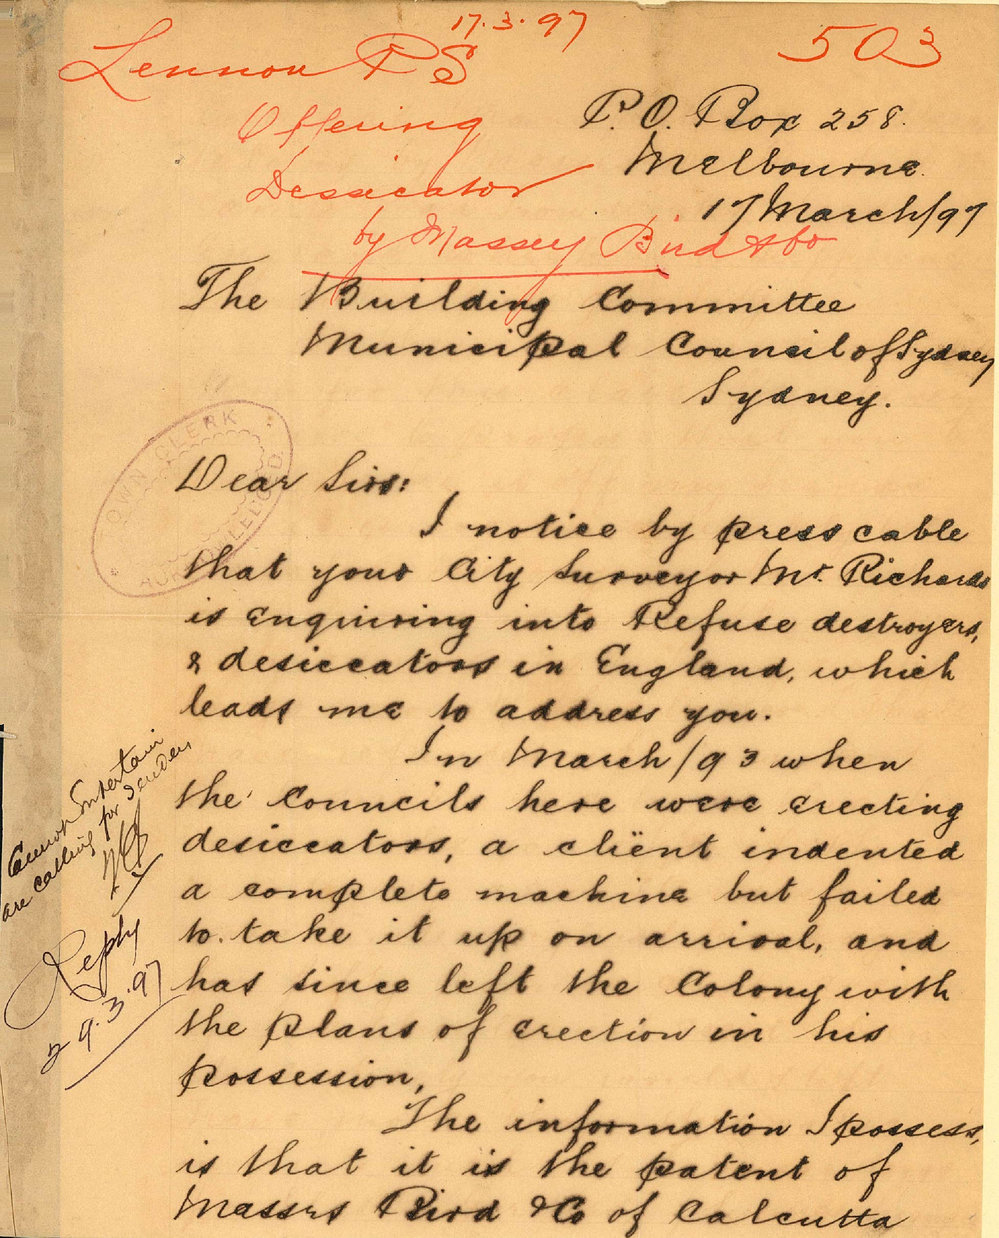 17.3.97
503
Lennon P S
Offering
Dessicator
by Massey Bird & Co
P.O. Box 258.
Melbourne.
17 March/97
The Building Committee
Municipal Council of Sydney
Sydney.
TOWN CLERK
Dear Sirs:
I notice by press cable
that your City Surveyor Mr. Richards
is enquiring into Refuse destroyers,
& desiccators in England, which
leads me to address you.
In March/93 when
the Councils here were erecting
desiccators, a clïent indented
a complete machine but failed
to take it up on arrival, and
has since left the Colony with
the plans of erection in his
possession,
The information I possess,
is that it is the patent of
Messrs Bird & Co of Calcutta
Cannot Entertain
are calling for Tenders
Reply
29.3.97